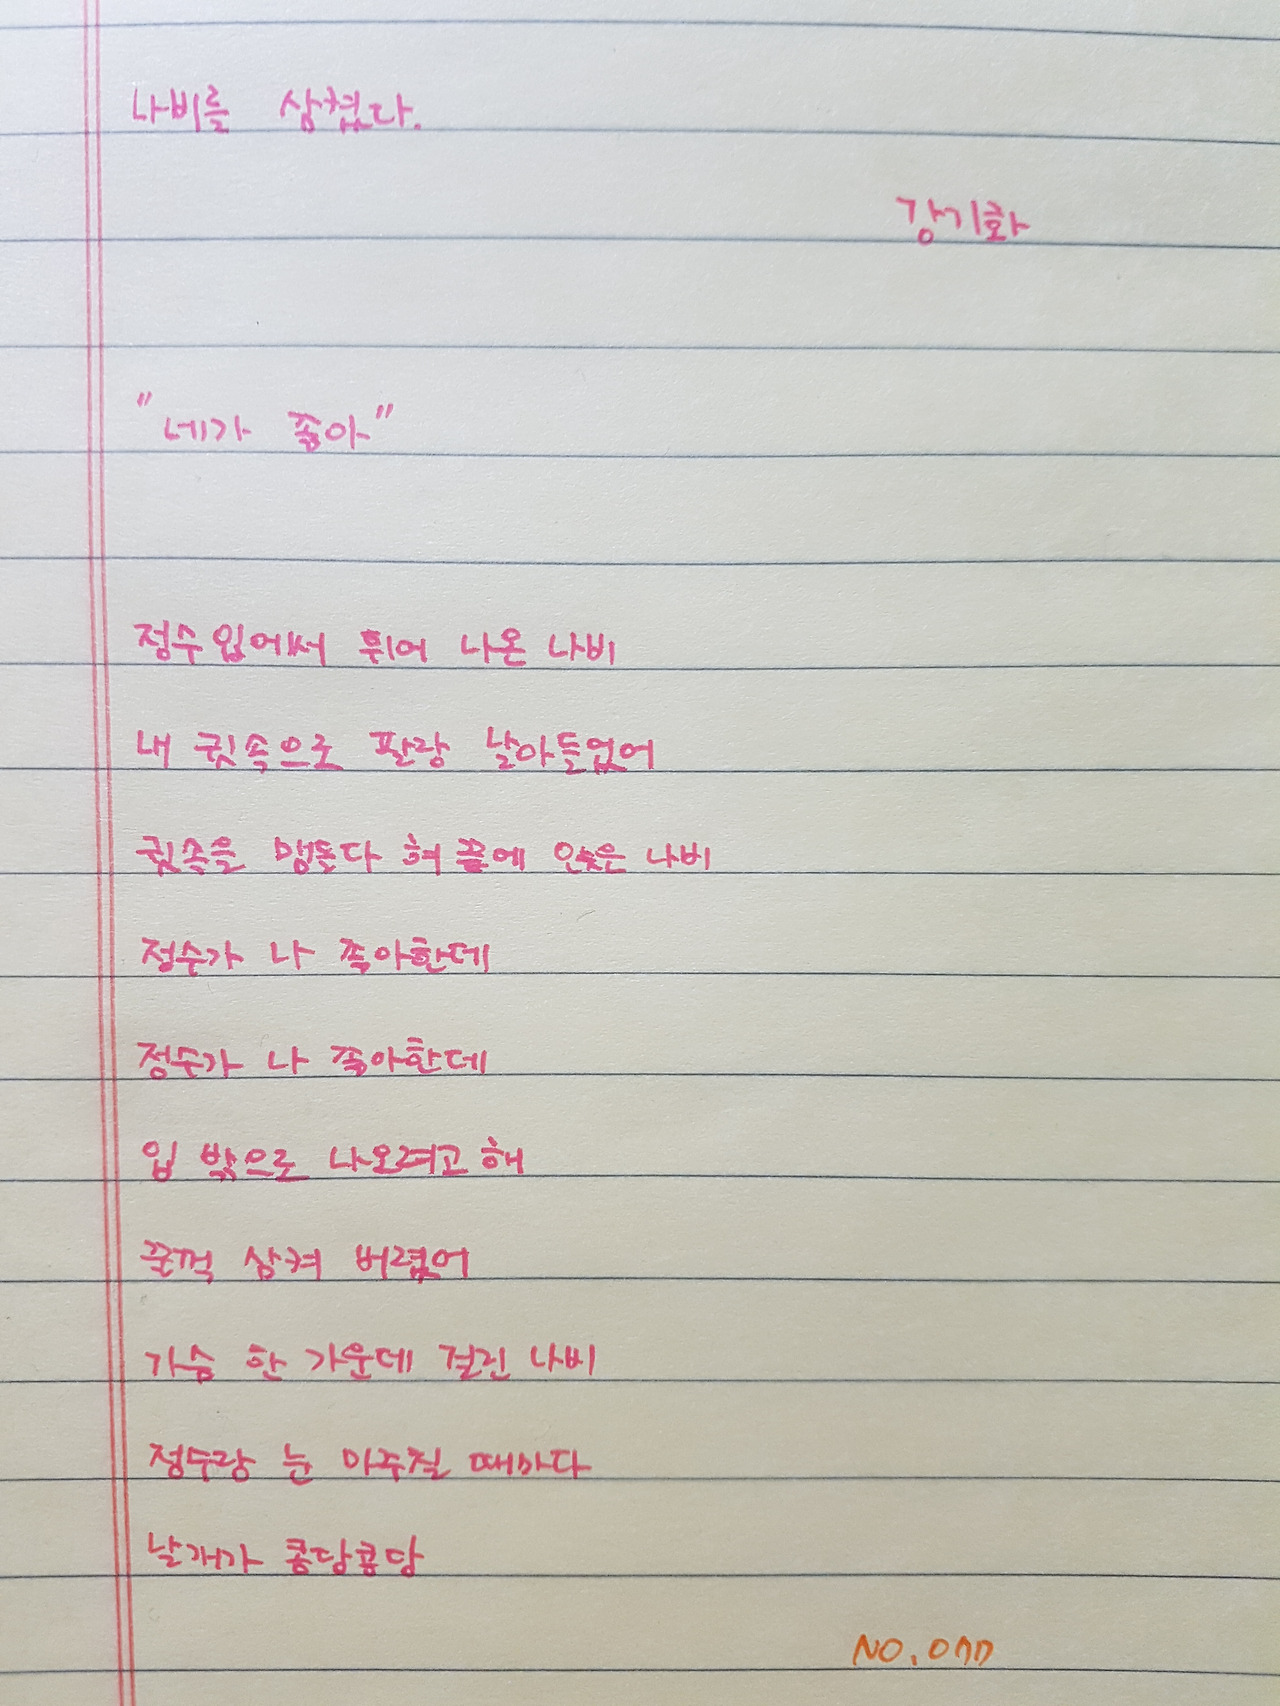 나비를 삼켰다.
강기화
"네가 좋아"
정수 입에서 튀어 나온 나비
내 귓속으로 팔랑 날아들었어
귓속을 맴돌다 혀 끝에 앉은 나비
정수가 나 좋아한데
정수가 나 좋아한데
입 밖으로 나오려고 해
꿀꺽 삼켜 버렸어
가슴 한 가운데 걸린 나비
정수랑 눈 마주칠 때마다
날개가 콩당콩당
NO.077